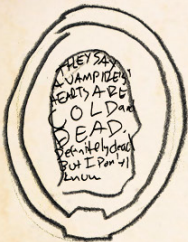 THEY SAY
A VAMPIRE'S
HEARTS ARE
COLD and
DEAD.
Definitely dead
But I Don't
know